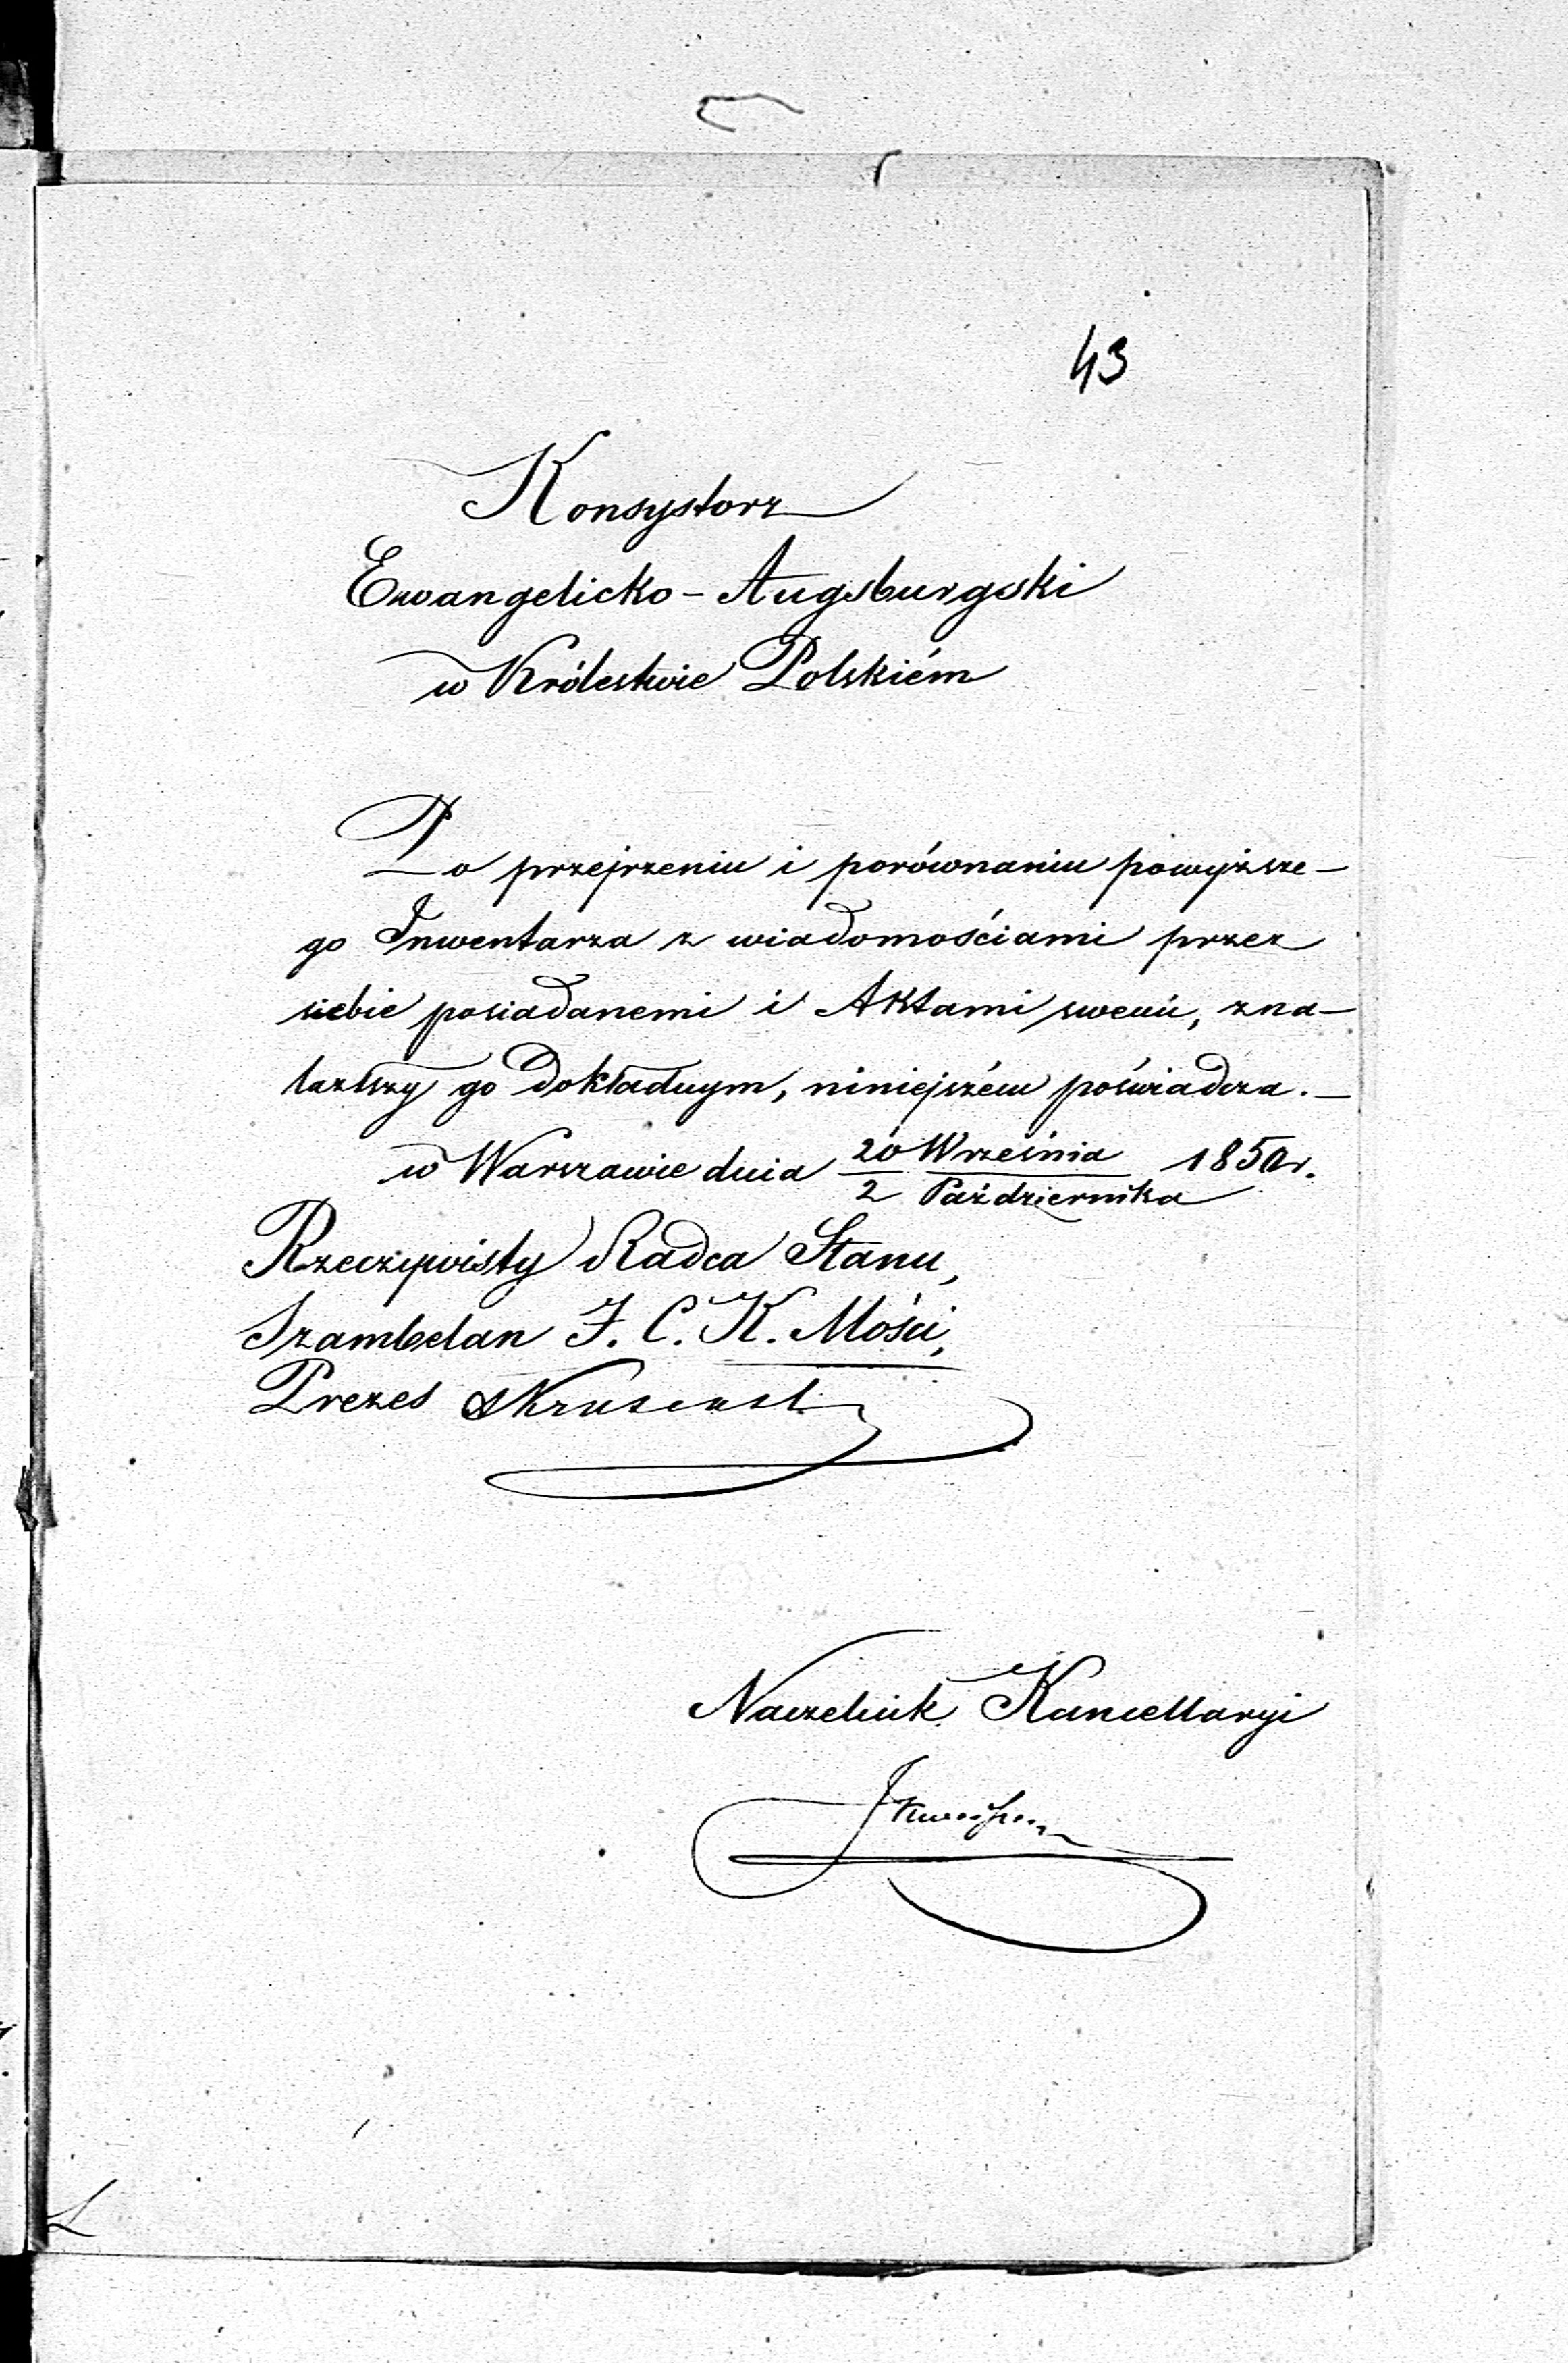 43
Konsystorz
Ewangelicko - Augsburgski
w Królestwie Polskiém
Po przejrzeniu i porównaniu powyższe-
go Inwentarza z wiadomościami przez
siebie posiadanemi i Aktami swemi, zna-
lazłszy go dokładnym, niniejszém poświadcza. -
w Warszawie dnia 20 Września 1850 r.
2 Października
Rzeczywisty Radca Stanu,
Szambelan J. C. K. Mości,
Prezes
Naczelnik Kancellaryi